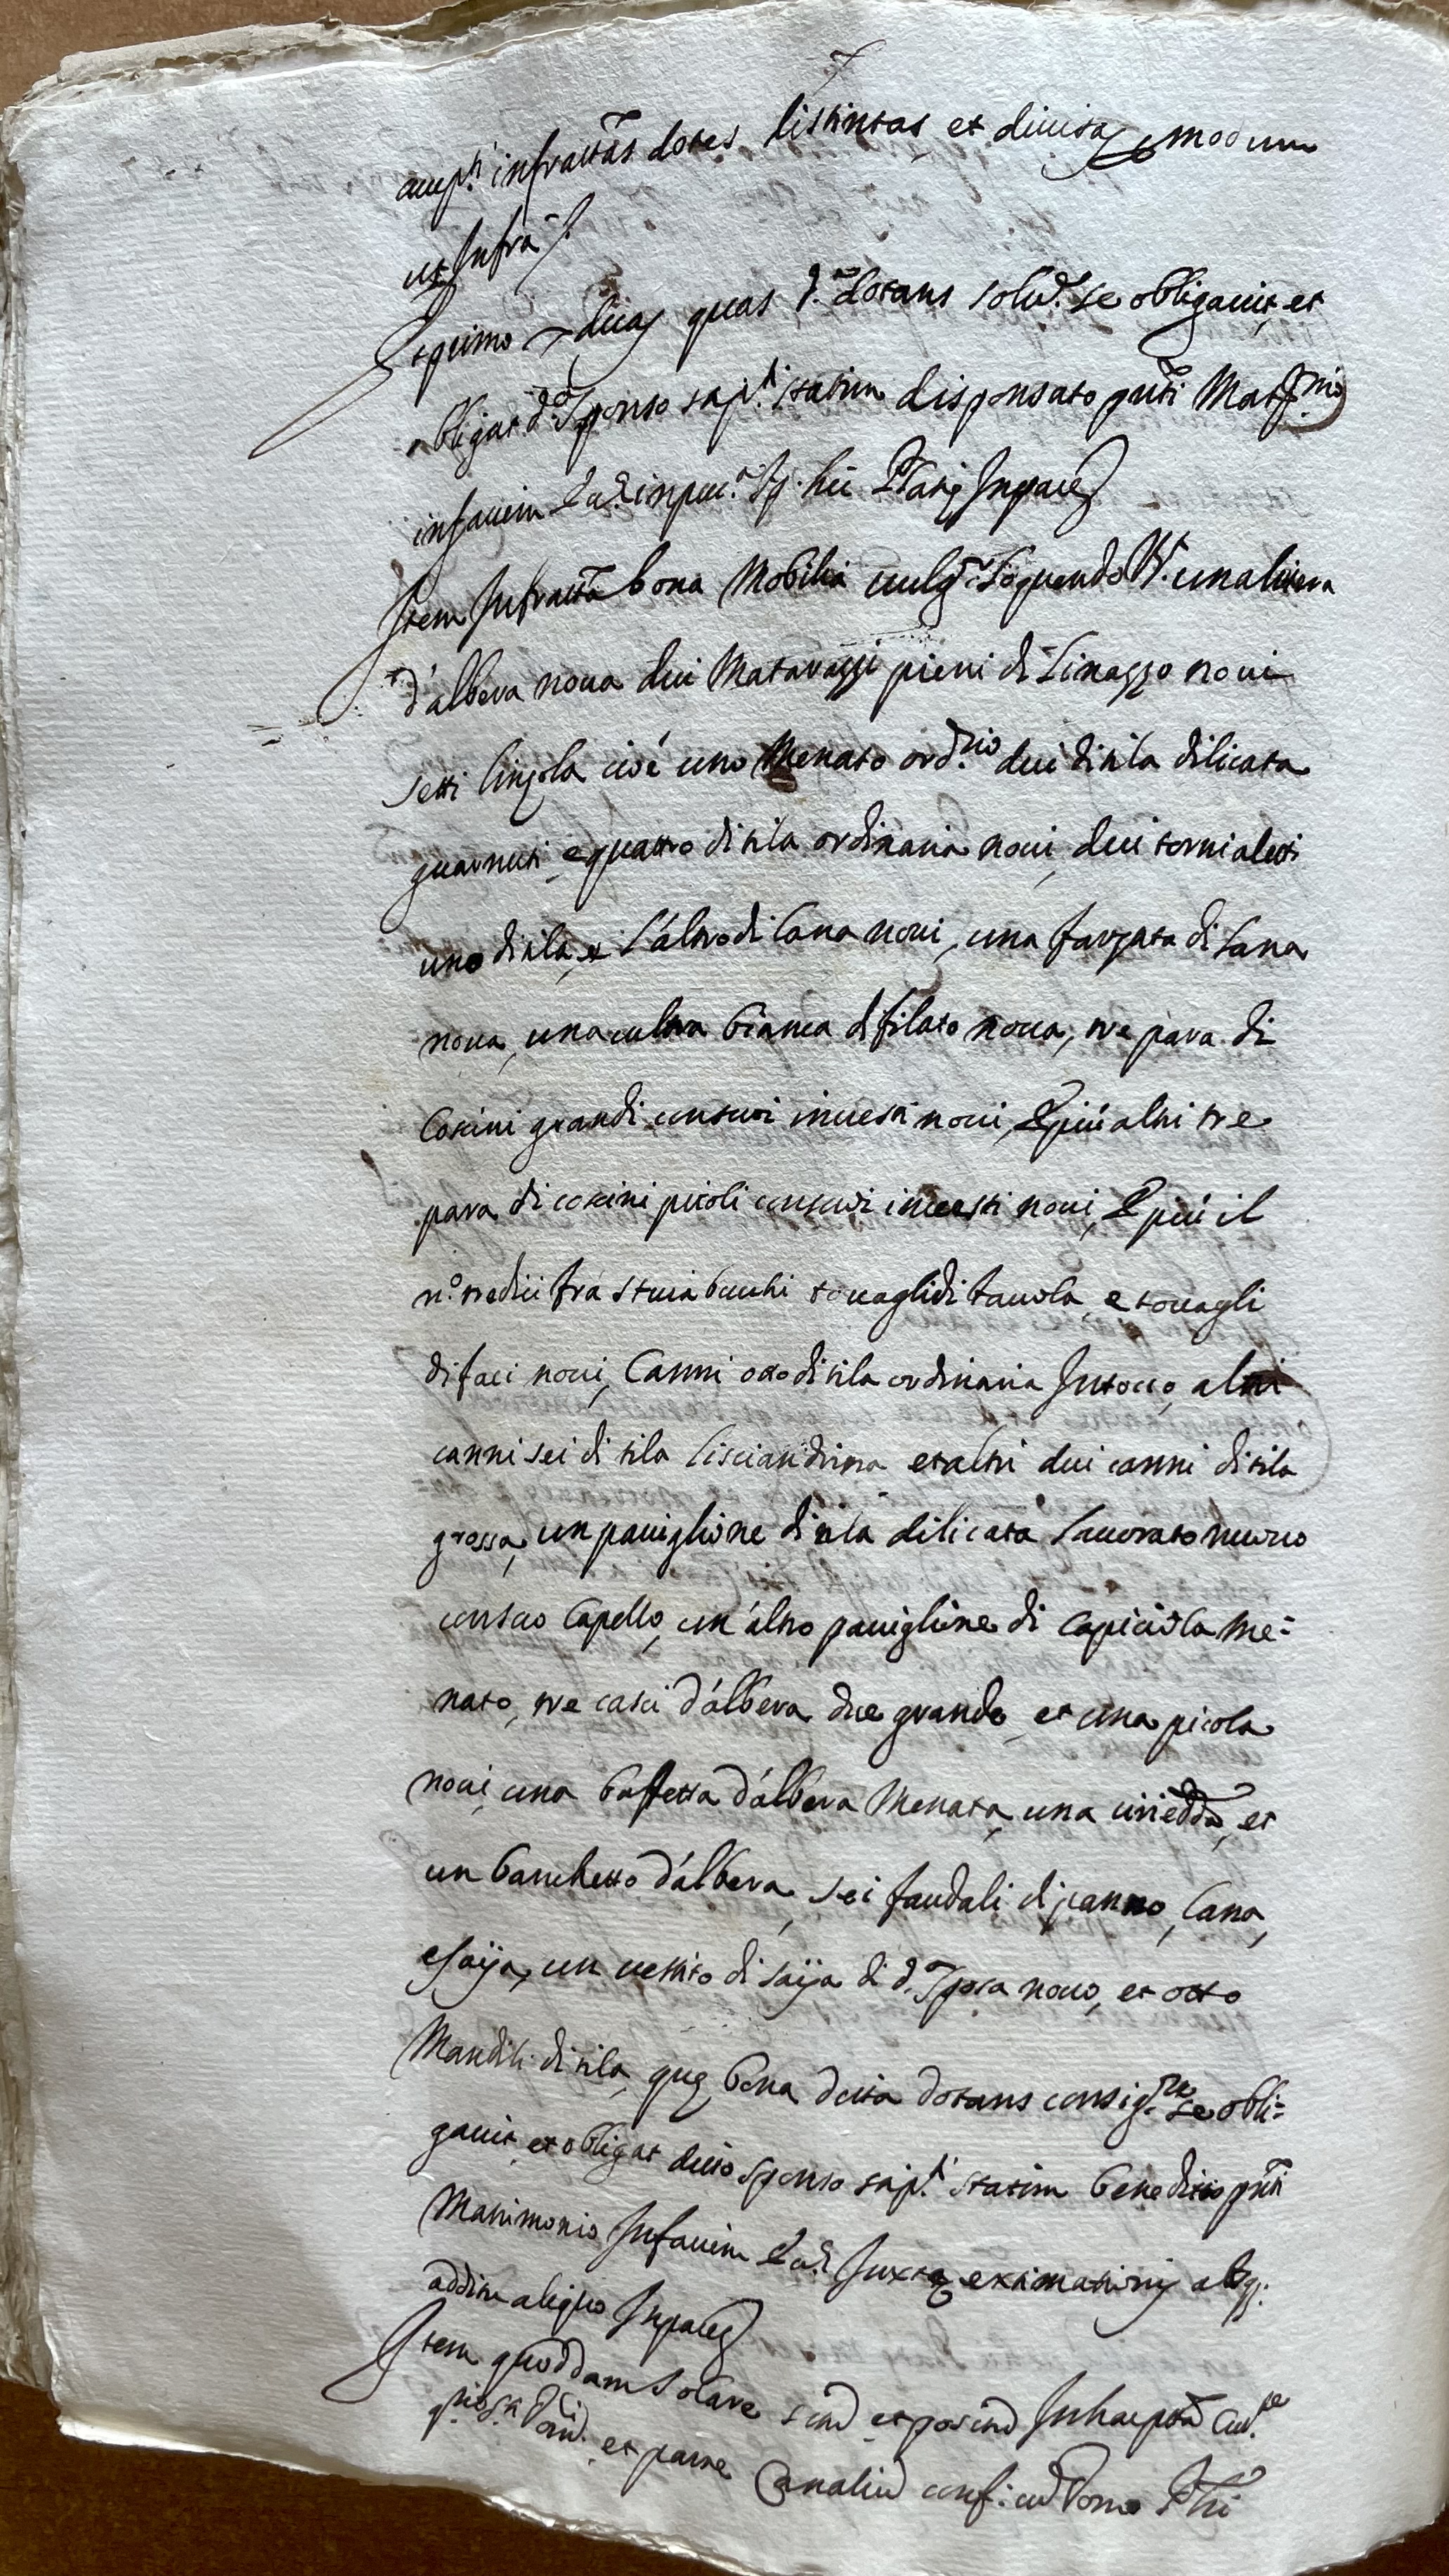 infra͠ttas dotes distintas et divisas modum
ut Infra
Et primo quas d. dotans se obligavit et
obligat d.o Sponso stip.ti statim dispensato p͠nti
In pace
Item Infra͠tta bona Mobilia vulg.r loquendo una littera
d'albera nova dui Matarazzi pieni di Linazzo novi
setti linzola cioè uno Menato ord.rio dui di tila dilicata
guarnuti, e quattro di tila ordinaria novi, dui tornialetti
uno di tila, e l'altro di lana novi, una farzata di lana
nova, una cultra bianca di filato nova, tre para di
Coscini grandi con suoi investi novi, e più altri tre
para di coscini picoli con suoi investi novi, e più il
n.o tredici frà stuiabucchi tovagli di tavola, e tovagli
di faci novi, Canni otto di tila ordinaria In tocco, altri
canni sei di tila lisciandrina et altri dui canni di tila
grossa, un paviglione di tila dilicata lavorato novo
con suo Capello, un'altro paviglione di capiciola me=
nato, tre casci d'albera due grande, et una picola
novi, una buffetta d'albera Menata, una et
un banchetto d'albera, sei faudali di panno, lana,
e saija, un vestito di saija di d. Sposa novo, et otto
Mandili di tila, que bona ditta dotans consig.re se obli=
gavit, et obligat ditto sponso stip.ti statim benedicto p͠nti
Matrimonio Juxta extimationis absq.
aliquo In pace
Item quoddam Solare et
et parte